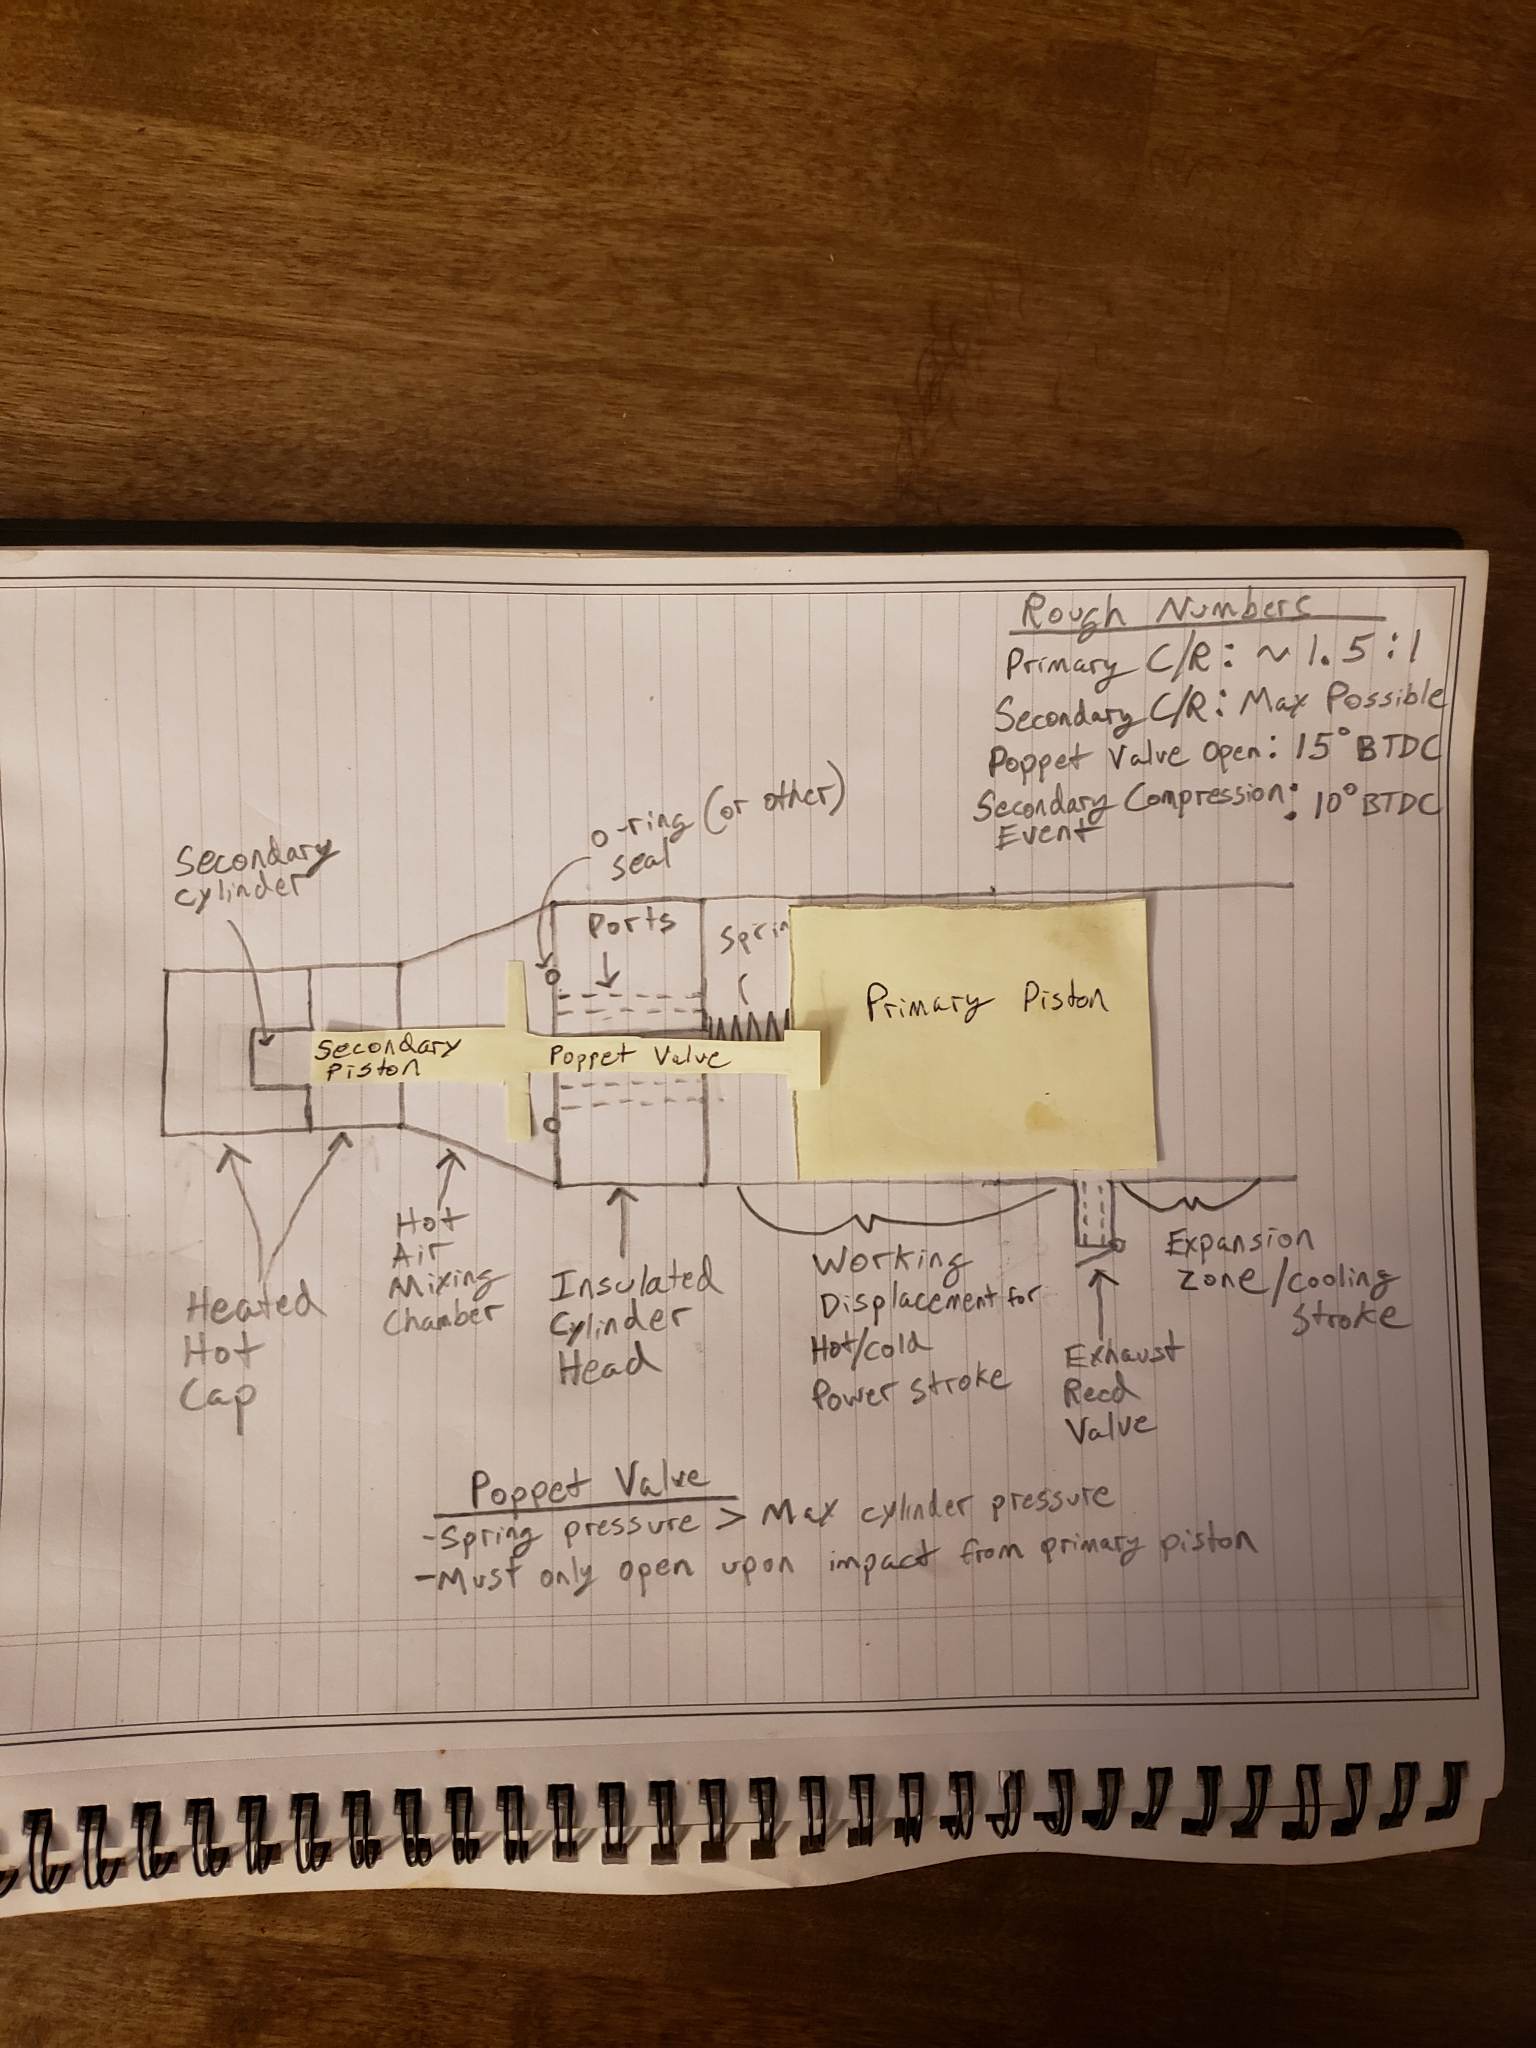 Rough Numbers
Primary C/R: ~ 1.5:1
Secondary C/R: Max Possible
Poppet Valve Open: 15° BTDC
Secondary Compression: 10° BTDC
Event
o-ring (or other)
seal
Secondary
Cylinder
Ports
Sprin
Primary Piston
Secondary
Piston
Poppet Valve
Heated
Hot
Cap
Hot
Air
Mixing
Chamber
Insulated
Cylinder
Head
Working
Displacement for
Hot/cold
Power stroke
Exhaust
Reed
Valve
Expansion
Zone/Cooling
Stroke
Poppet Valve
-Spring pressure > Max cylinder pressure
-Must only open upon impact from primary piston